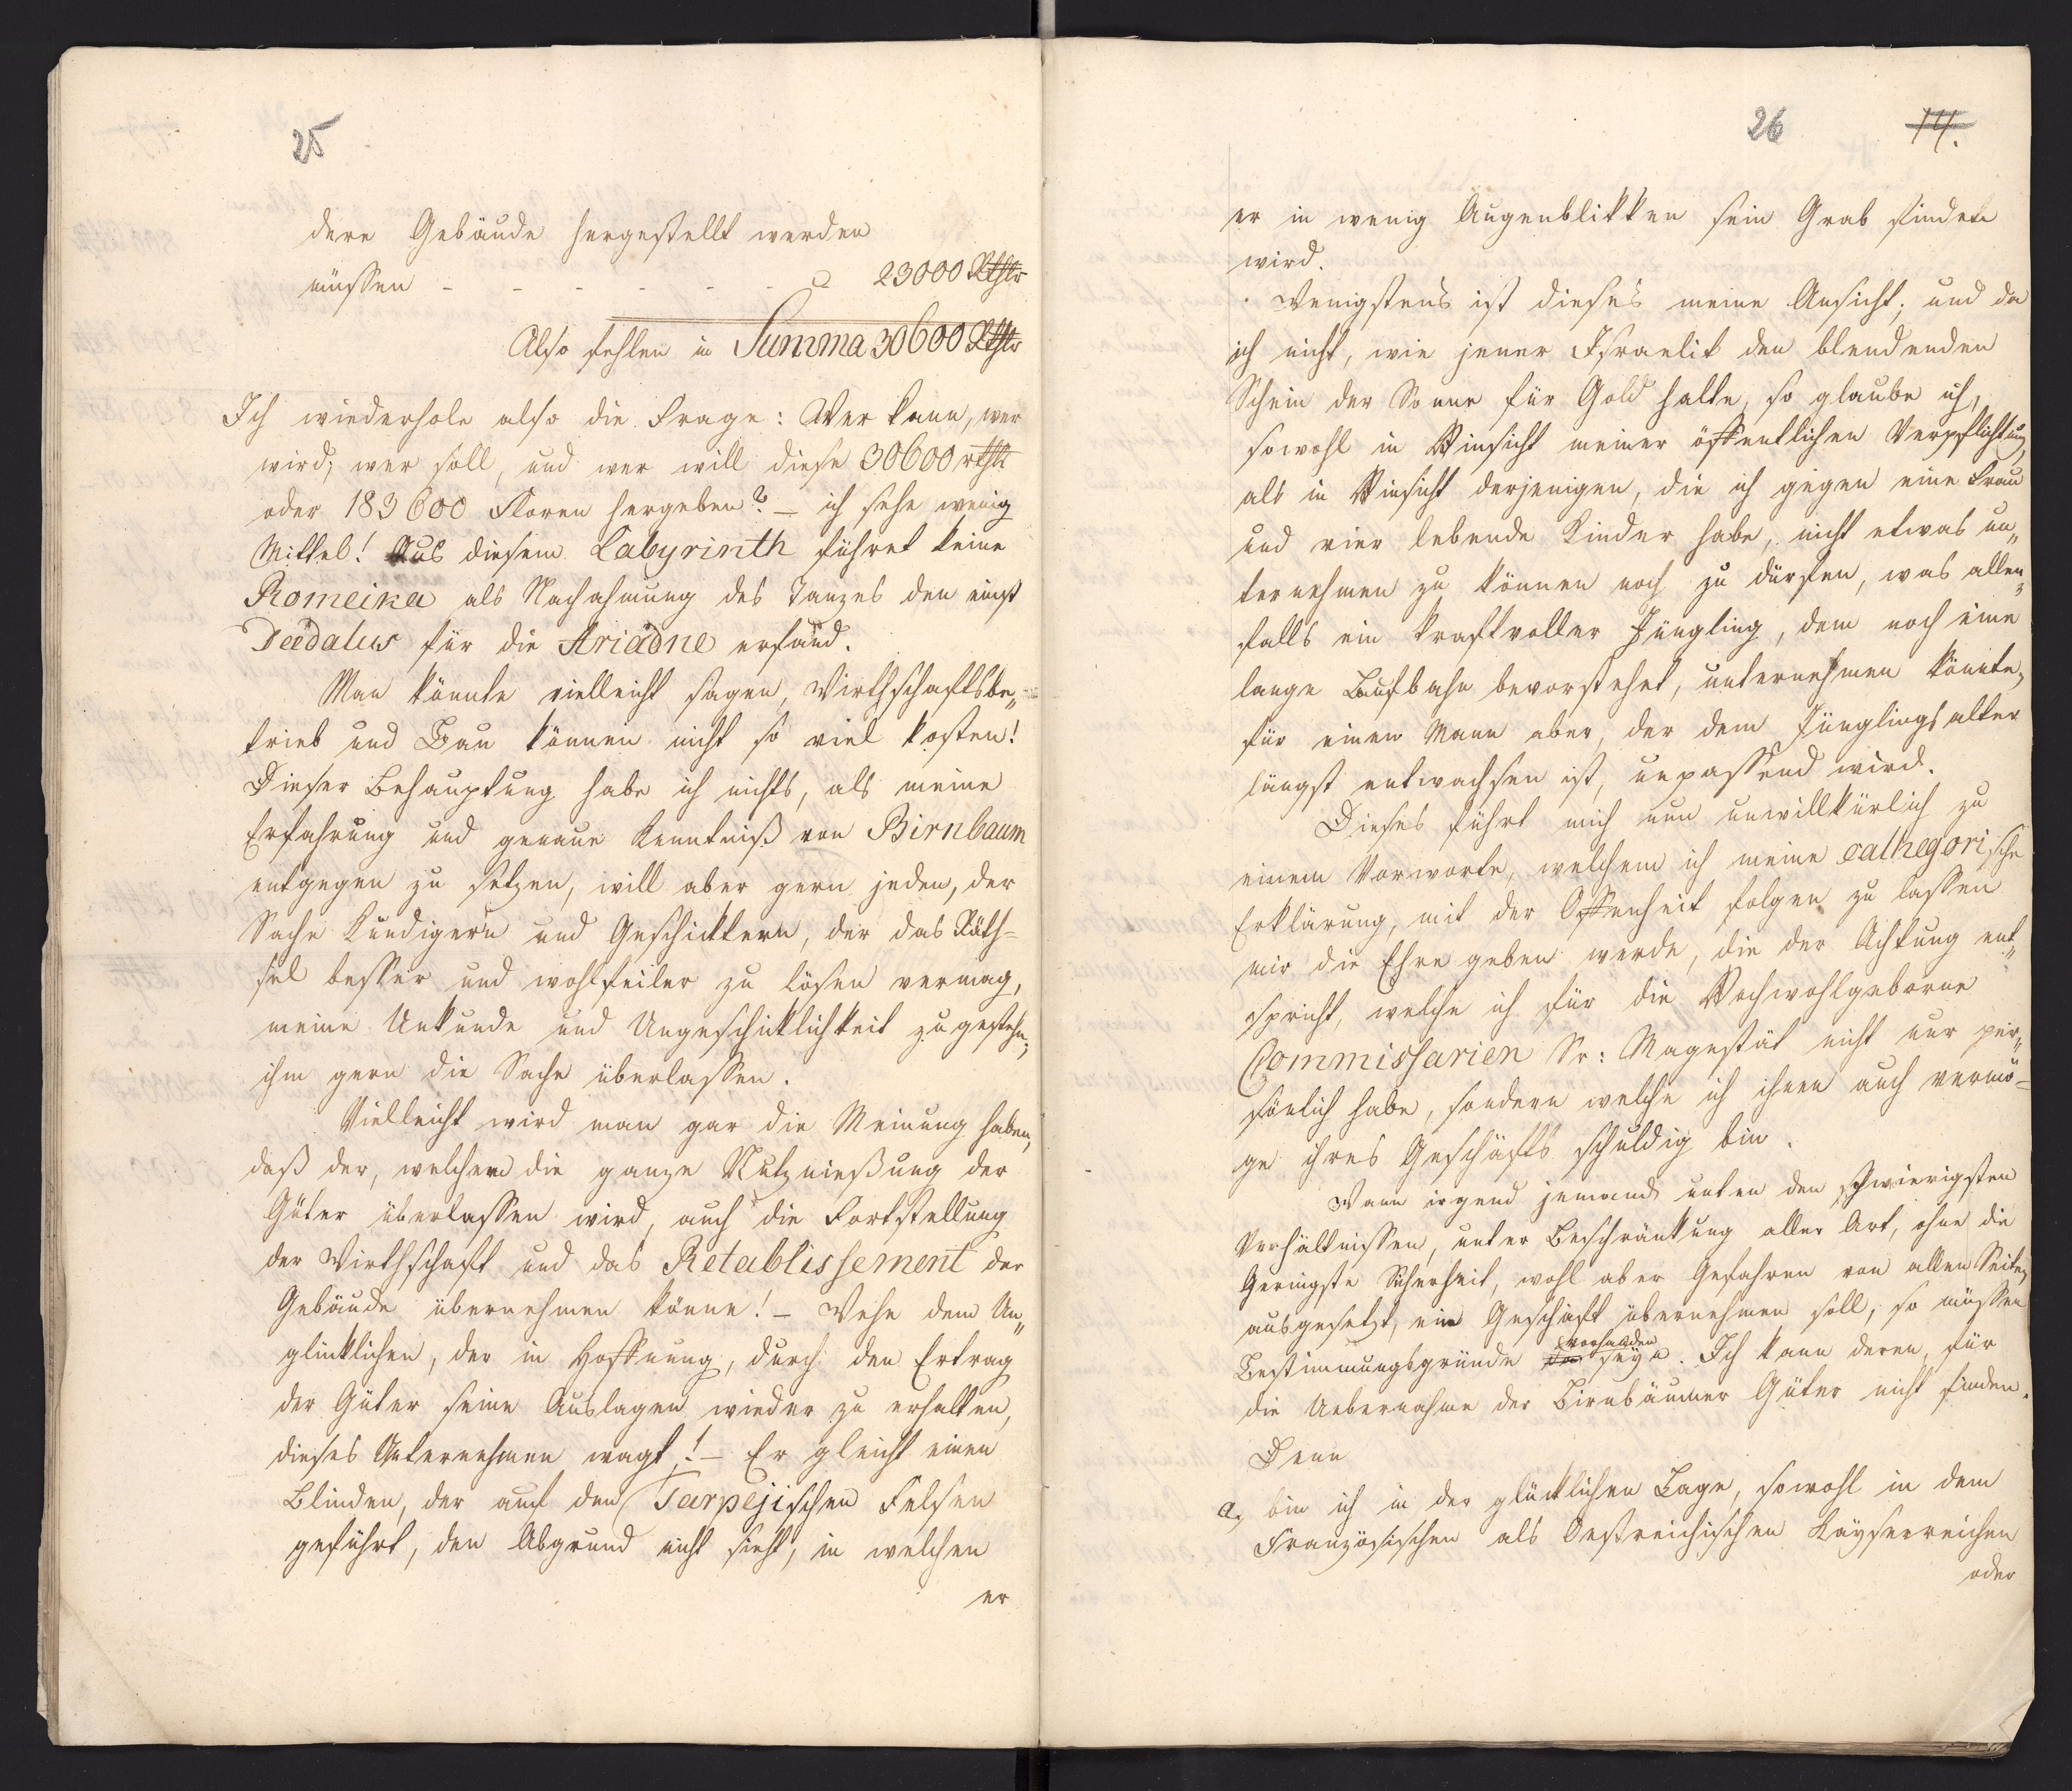 25
dere Gebäude hergestellt werden
müssen - - - - - - - a 23000 Rthlr
Also fehlen in Summa 30600 Rthlr
Ich wiederhole also die Frage: Wer kann, wer
wird, wer soll, und wer will diese 30600 rthlr
oder 183600 Floren hergeben? - ich sehe wenig
Mittel! Aus diesem Labyrinth führet keine
Romeika als Nachahmung des Tanzes den einst
Dedalus für die Ariadne erfand.
Man könnte vielleicht sagen, Wirthschaftsbe„
trieb und Bau können nicht so viel kosten!
Dieser Behauptung habe ich nichts, als meine
Erfahrung und genaue Kenntniß von Birnbaum
entgegen zu setzen, will aber gern jeden, der
Sache Kundigern und Geschicktern, der das Räth-
sel besser und wohlfeiler zu lösen vermag,
meine Unkunde und Ungeschicklichkeit zugestehn,
ihm gern die Sache überlassen.
Vielleicht wird man gar die Meinung haben,
daß der, welchem die ganze Nutznießung der
Güter überlassen wird, auch die Fortstellung
der Wirthschaft und das Retablissement der
Gebäude übernehmen könne! - Wehe dem Un„
glücklichen, der in Hoffnung, durch den Ertrag
der Güter seine Auslagen wieder zu erhalten,
dieses Unternehmen wagt! - Er gleicht einen
Blinden, der auf den Tarpejischen Felsen
geführt, den Abgrund nicht sieht, in welchen
er
26 14.
er in wenig Augenblikken sein Grab finden
wird.
Wenigstens ist dieses meine Ansicht; und da
ich nicht, wie jener Israelit den blendenden
Schein der Sonne für Gold halte, so glaube ich,
sowohl in Hinsicht meiner öffentlichen Verpflichtung,
als in Hinsicht derjenigen, die ich gegen eine Frau
und vier lebende Kinder habe, nicht etwas un„
ternehmen zu können noch zu dürfen, was allen„
falls ein kraftvoller Jüngling, dem noch eine
lange Laufbahn bevorstehet, unternehmen könnte,
für einen Mann aber, der dem Jünglingsalter
längst entwachsen ist, unpassend wird.
Dieses führt mich nun unwillkürlich zu
einem Vorworte, welchem ich meine cathegorische
Erklärung, mit der Offenheit folgen zu lassen
mir die Ehre geben werde, die der Achtung ent„
spricht, welche ich für die Hochwohlgeborne
Commissarien Sr: Magestät nicht nur per„
sönlich habe, sondern welche ich ihnen auch vermö-
ge ihres Geschäfts schuldig bin.
Wann irgend jemand unter den schwierigsten
Verhältnissen, unter Beschränkung aller Art, ohne die
Geringste Sicherheit, wohl aber Gefahren von allen Seiten
ausgesetzt, ein Geschäft übernehmen soll, so müssen
Bestimmungsgründe da vorhanden seyn. Ich kann deren, für
die Uebernahme der Birnbäumer Güter nicht finden.
Denn
a, bin ich in der glücklichen Lage, sowohl in dem
Französischen als Oestreichischen Kayserreichen
oder